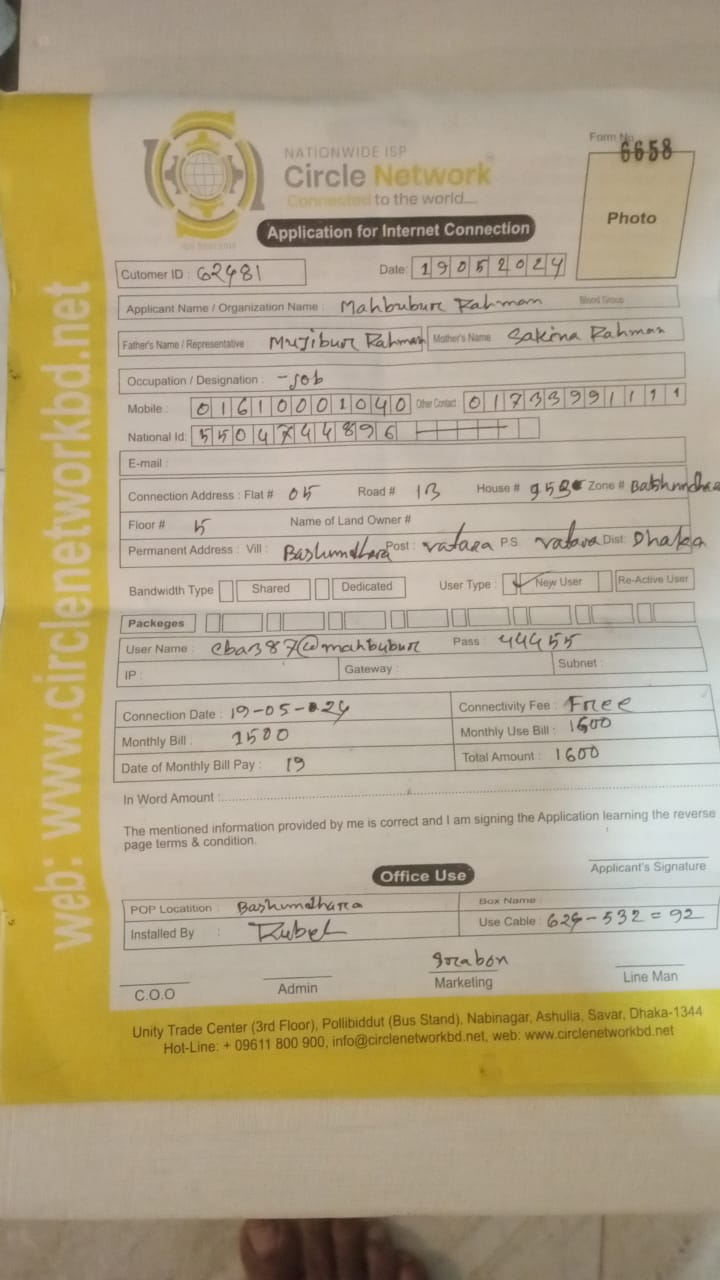 Form No
6658
NATIONWIDE ISP
Circle Network
Connected to the world....
Photo
Application for Internet Connection
Cutomer ID : 62481 Date: 19052024
Applicant Name / Organization Name : Mahbubur Rahman Blood Group
Father's Name / Representative : Mujibur Rahman Mother's Name Sakina Rahman
Occupation / Designation : -Job
Mobile : 01610001040 Other Contact : 01733991111
National Id: 5504744896
E-mail :
Connection Address : Flat # 05 Road # 13 House # Zone # Bashundhara
Floor # 5 Name of Land Owner #
Permanent Address : Vill : Bashundhara Post : vatara P.S vatara Dist: Dhaka
Bandwidth Type Shared Dedicated User Type : New User Re-Active User
Packeges
User Name : cbar387@mahbubur Pass : 44455
IP : Gateway : Subnet :
Connection Date : 19-05-24 Connectivity Fee : Free
Monthly Bill : 1500 Monthly Use Bill :
Date of Monthly Bill Pay : 19 Total Amount : 1600
In Word Amount :
The mentioned information provided by me is correct and I am signing the Application learning the reverse
page terms & condition.
Applicant's Signature
Office Use
POP Locatition : Bashundhara Box Name
Installed By : Rubel Use Cable : 624-532=92
Srabon
C.O.O Admin Marketing Line Man
Unity Trade Center (3rd Floor), Pollibiddut (Bus Stand), Nabinagar, Ashulia, Savar, Dhaka-1344
Hot-Line: + 09611 800 900, info@circlenetworkbd.net, web: www.circlenetworkbd.net
web: www.circlenetworkbd.net